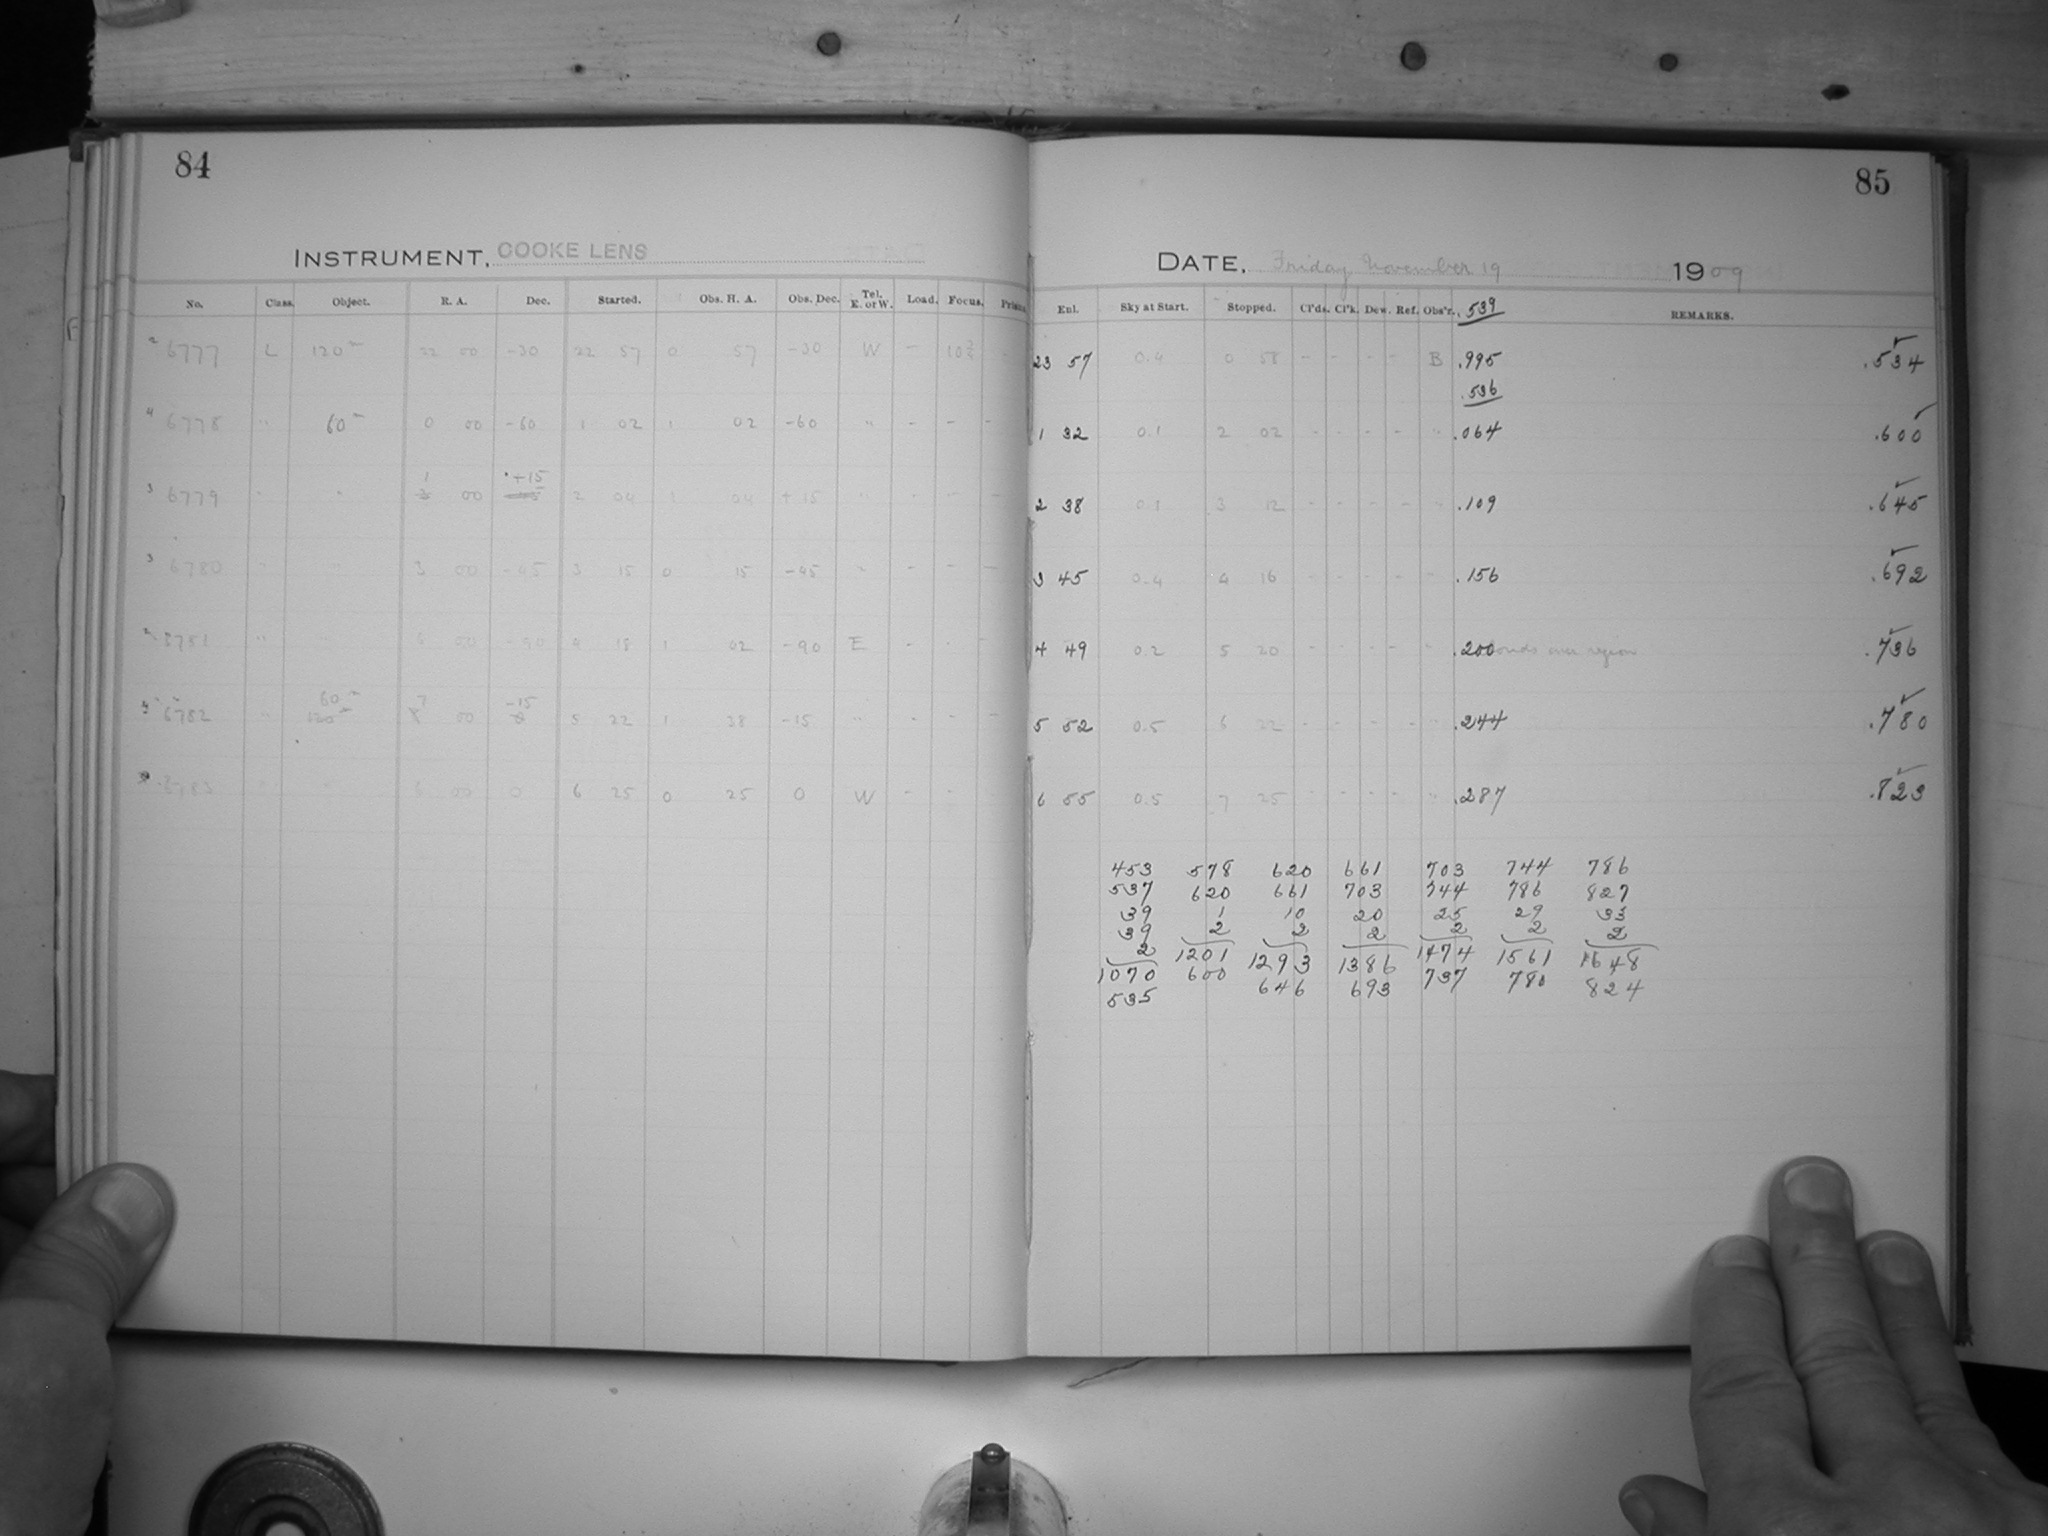 84
INSTRUMENT, COOKE LENS
No. Class. Object. R. A. Dec. Started. Obs. H. A. Obs. Dec. Tel. E. or W. Load. Focus.
2 6777 L 120m 22 00 -30 22 57 0 57 -30 W - 10
4 6778 " 60m 0 00 -60 1 02 1 02 -60 " - - -
1 +15
3 6779 " " 00 2 04 1 04 +15 " - - -
3 6780 " " 3 00 -45 3 15 0 15 -45 " - - -
" " 00 -90 4 18 1 02 -90 E - - -
60m 7 -15
6782 " 120m 8 00 5 22 1 38 -15 " - - -
00 0 6 25 0 25 0 W - -
85
DATE, Friday November 19 1909
Enl. Sky at Start. Stopped. Cl'ds. Cl'k. Dew. Ref. Obs'r. .539 REMARKS.
23 57 0.4 0 58 - - - - B .995 .534
.536
1 32 0.1 2 02 - - - - " .064 .600
2 38 0.1 3 12 - - - - " .109 .645
3 45 0.4 4 16 - - - - " .156 .692
4 49 0.2 5 20 - - - - " .200 over region .736
5 52 0.5 6 22 - - - - " .244 .780
6 55 0.5 7 25 - - - - " .287 .823
453 578 620 661 703 744 786
537 620 661 703 744 786 827
39 1 10 20 25 29 33
39 2 2 2 2 2 2
2 1201 1293 1386 1474 1561 1648
1070 600 646 693 737 780 824
535